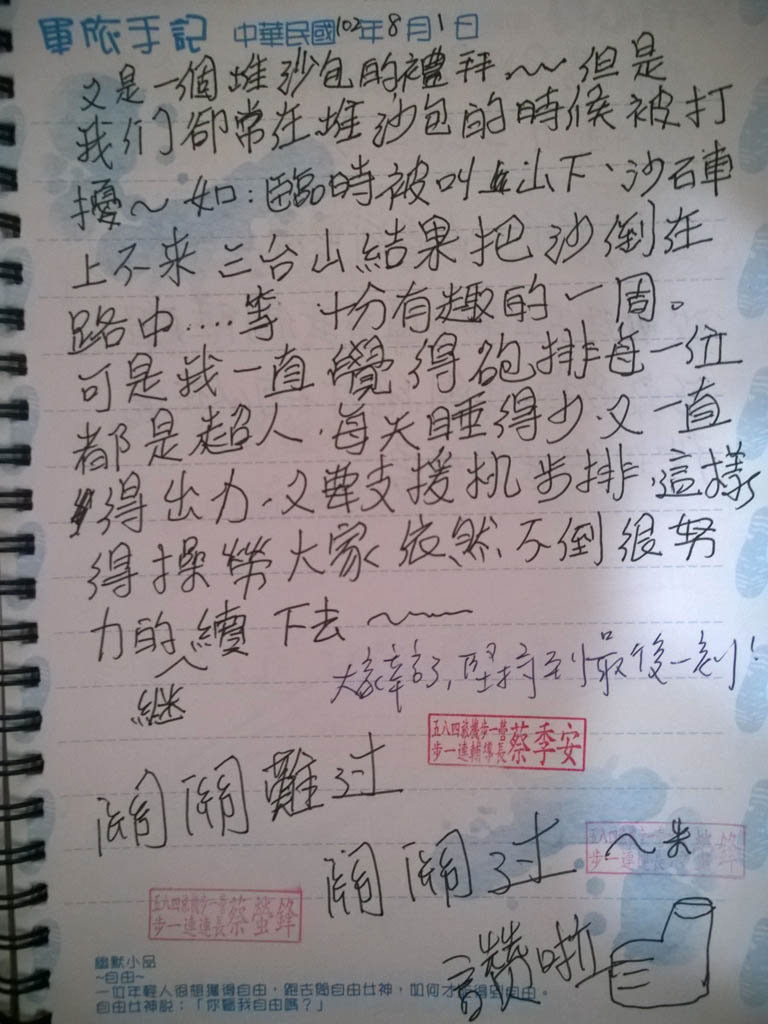 軍旅手記 中華民國102年8月1日
又是一個堆沙包的禮拜~~但是
我们卻常在堆沙包的時候被打
擾~如:臨時被叫山下、沙石車
上不来三台山結果把沙倒在
路中....等 十分有趣的一周。
可是我一直覺得砲排每一位
都是超人,每天睡得少,又一直
得出力,又要支援机步排,這樣
得操勞大家依然不倒很努
力的續下去~~
繼
大家辛苦了,堅持到最後一刻!
五八四旅機步一營
步一連輔導長蔡季安
關關難过
關關过
步一連連長蔡螢鋒
讚啦
幽默小品
~自由~
一位年輕人很想獲得自由,跑去問自由女神,如何才能得到自由。
自由女神說:「你看我自由嗎?」